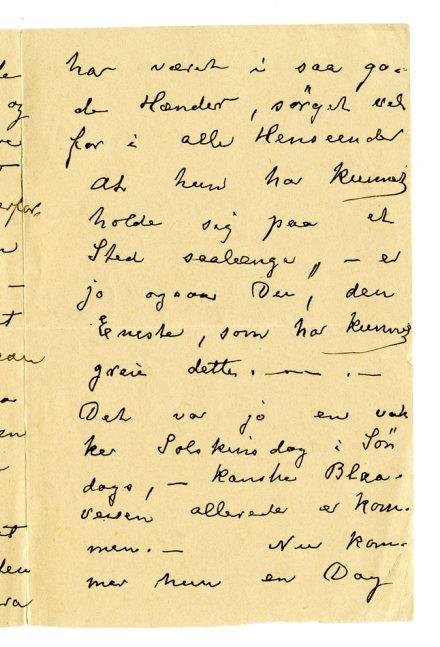 har været i saa go-
de Hænder, sörget vel
for i alle Henseender
At hun har kunnet
holde sig paa et
Sted saalænge, – er
jo ogsaa Du, den
Eneste, som har kunnet
greie dette. — . –
Det var jo en vak
ker Solskinsdag i Sön
dags, – kanske Blaa-
veisen allerede er kom-
men. – Nu kom-
mer hun en Dag